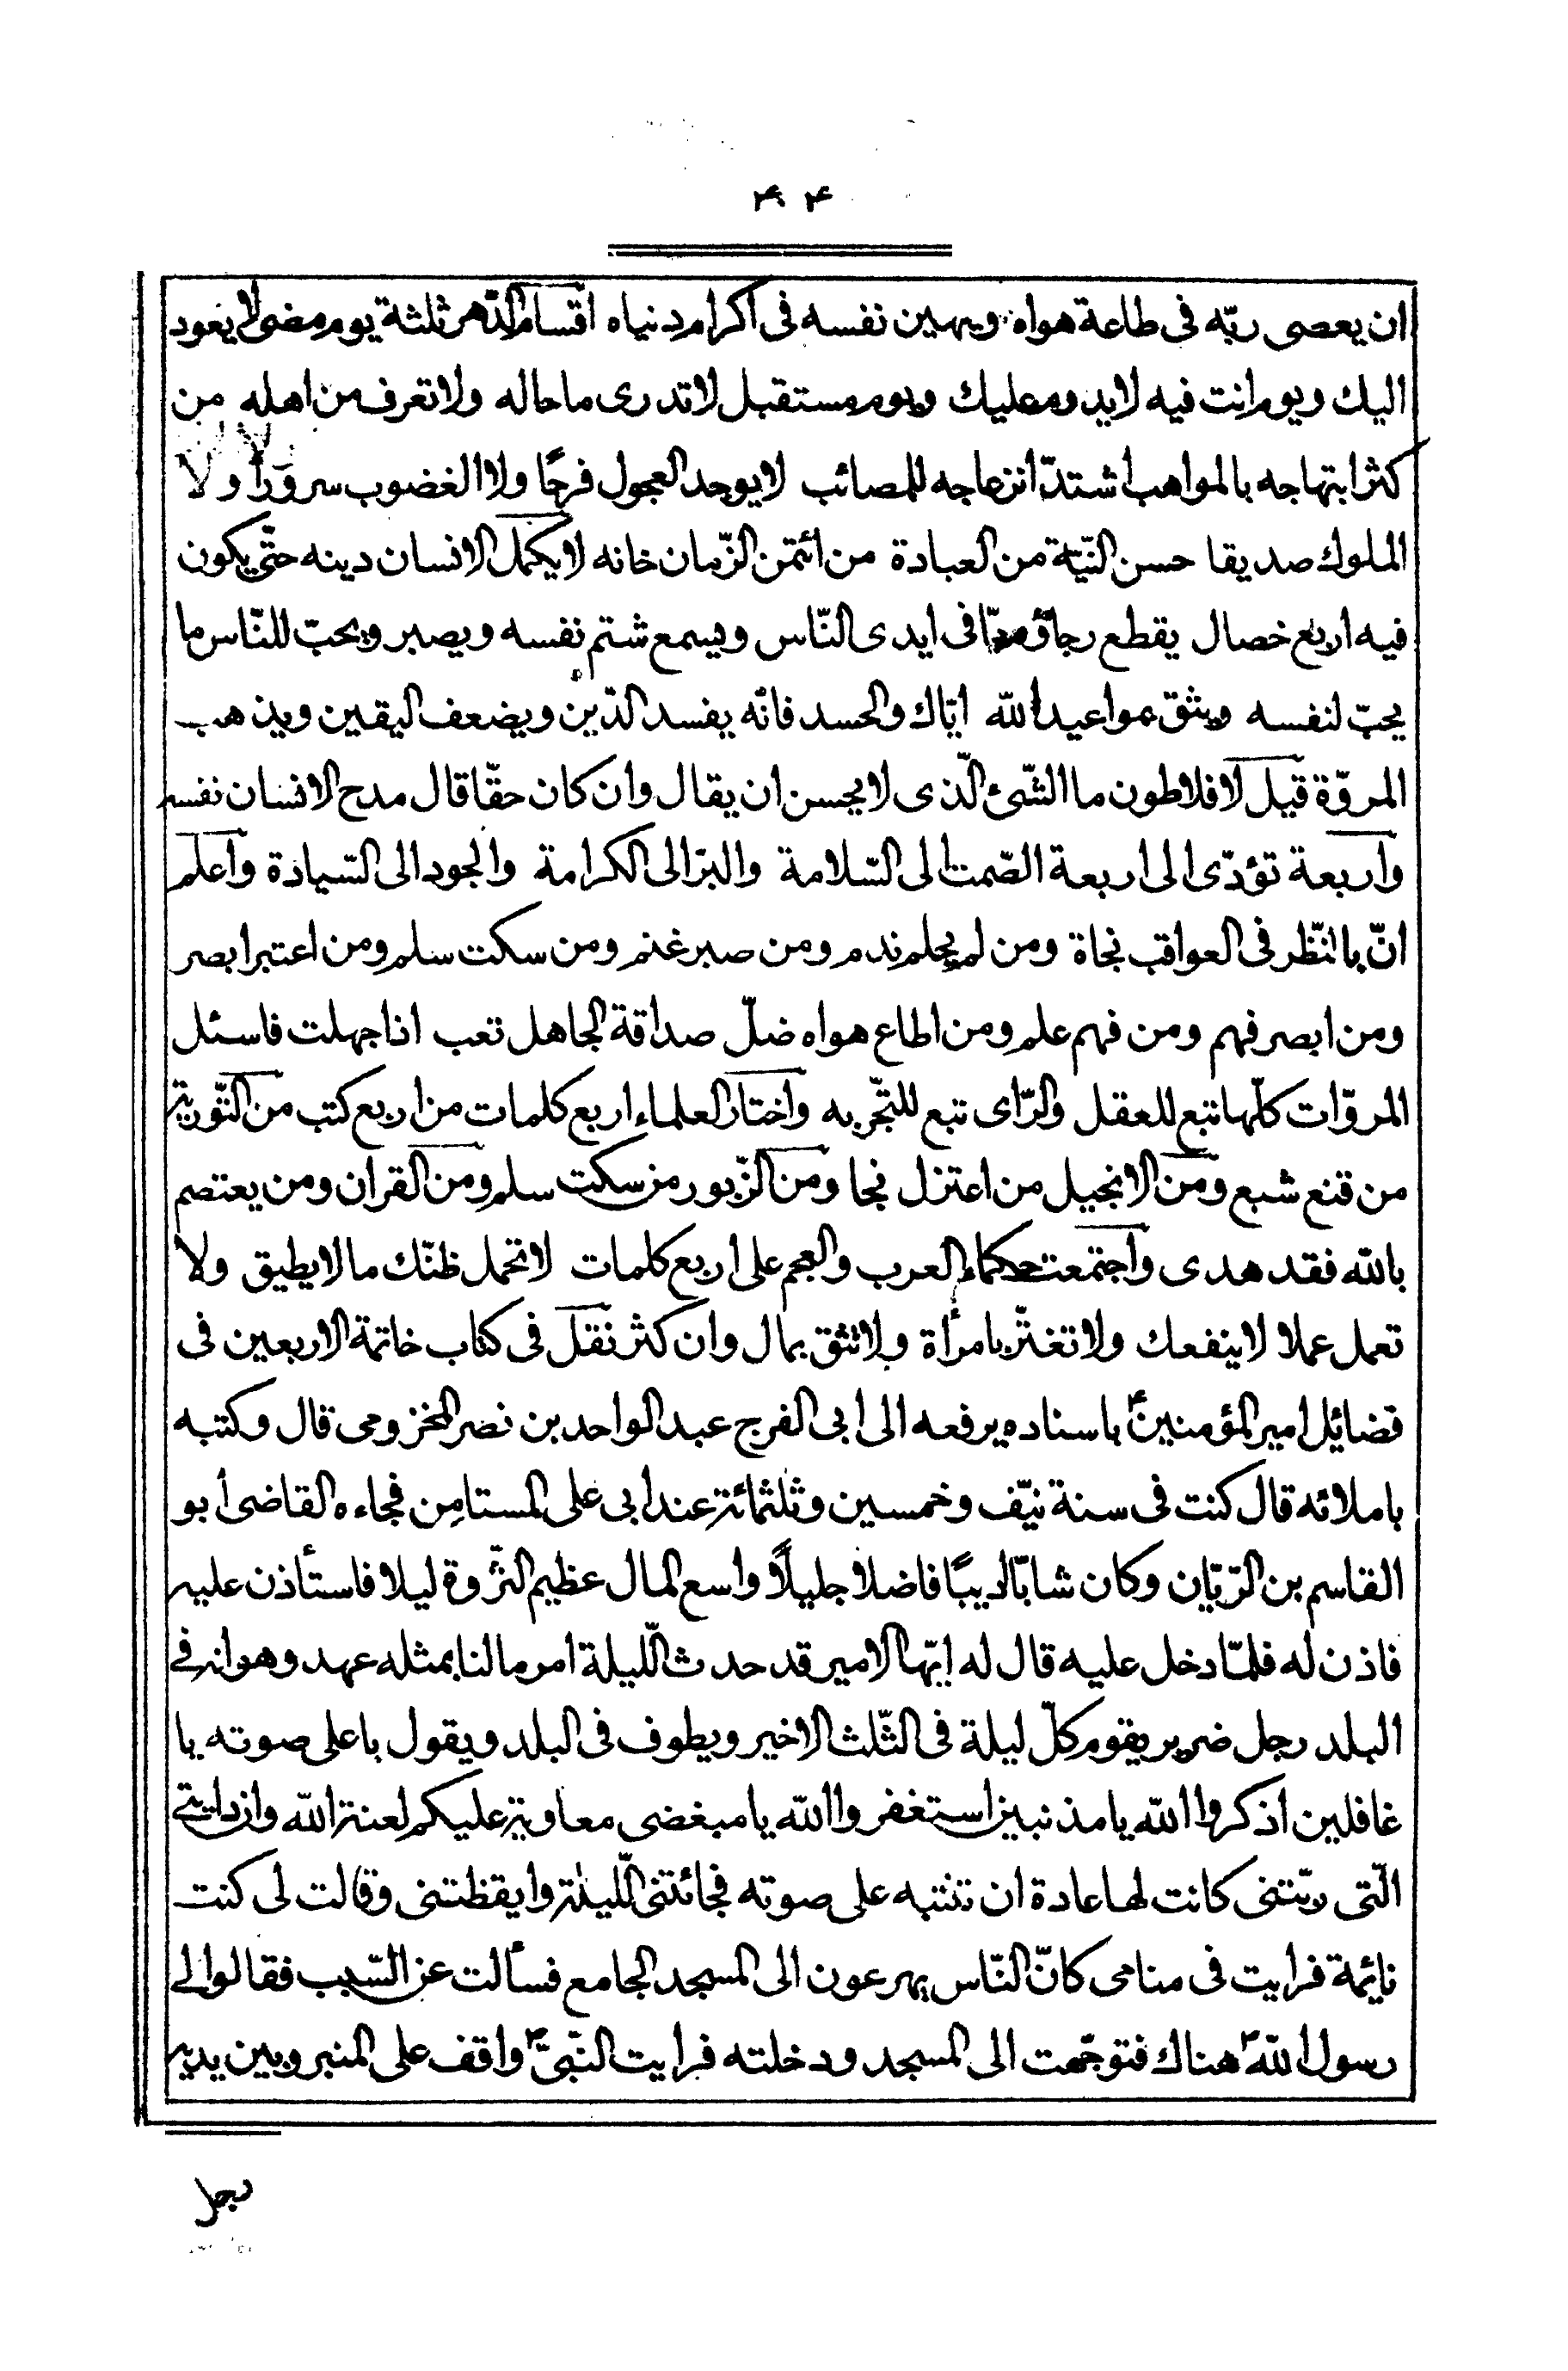 ۴۴
ان يعصى ربّه فى طاعة هواه ويهين نفسه فى اكرام دنياه اقسام الدّهر ثلثة يوم مضى لا يعود
اليك ويوم انت فيه لا يدوم عليك ويوم مستقبل لا تدرى ما حاله ولا تعرف من اهله من
كثر ابتهاجه بالمواهب اشتدّ انزعاجه للمصائب لا يوجد العجول فرحًا ولا الغضوب سرورًا ولا
الملوك صديقا حسن النّيّة من العبادة من ائتمن الزّمان خانه لا يكمل الانسان دينه حتّى يكون
فيه اربع خصال يقطع رجاؤه ممّا فى ايدى النّاس ويسمع شتم نفسه ويصبر ويحبّ للنّاس ما
يحبّ لنفسه ويثق بمواعيد الله ايّاك والحسد فانّه يفسد الدّين ويضعف اليقين ويذهب
المروّة قيل لافلاطون ما الشّئ الّذى لا يحسن ان يقال وان كان حقّا قال مدح الانسان نفسه
واربعة تؤدّى الى اربعة الصّمت الى السّلامة والبرّ الى الكرامة والجود الى السّيادة واعلم
انّ بالنّظر فى العواقب نجاة ومن لم يحلم ندم ومن صبر غنم ومن سكت سلم ومن اعتبر ابصر
ومن ابصر فهم ومن فهم علم ومن اطاع هواه ضلّ صداقة الجاهل تعب اذا جهلت فاسئل
المروّات كلّها تبع للعقل والرّاى تبع للتّجربه واختار العلماء اربع كلمات من اربع كتب من التّورية
من قنع شبع ومن الانجيل من اعتزل نجا ومن الزّبور من سكت سلم ومن القران ومن يعتصم
بالله فقد هدى واجتمعت حكماء العرب والعجم على اربع كلمات لا تحمل ظنّك ما لا يطيق ولا
تعمل عملا لا ينفعك ولا تغترّ بامرأة ولا تثق بمال وان كثر نقل فى كتاب خاتمة الاربعين فى
فضائل امير المؤمنينؑ باسناده يرفعه الى ابى الفرج عبد الواحد بن نصر المخزومى قال وكتبه
باملائه قال كنت فى سنة نيّف وخمسين وثلثمائة عند ابى على المستامن فجاءه القاضى أبو
القاسم بن الرّيّان وكان شابّا اديبًا فاضلا جليلًا واسع المال عظيم الثّروة ليلا فاستأذن عليه
فاذن له فلمّا دخل عليه قال له ايّها الامير قد حدث اللّيلة امر ما لنا بمثله عهد وهو انه فى
البلد رجل ضرير يقوم كلّ ليلة فى الثّلث الاخير ويطوف فى البلد ويقول باعلى صوته يا
غافلين اذكروا الله يا مذنبين استغفروا الله يا مبغضى معاوية عليكم لعنة الله وان دايتى
الّتى ربّتنى كانت لها عادة ان تنتبه على صوته فجائتنى اللّيلة وايقظتنى وقالت لى كنت
نائمة فرايت فى منامى كانّ النّاس يهرعون الى المسجد الجامع فسألت عن السّبب فقالوا لى
رسول اللهؐ هناك فتوجّهت الى المسجد ودخلته فرايت النّبىّؐ واقف على المنبر وبين يديه
رجل